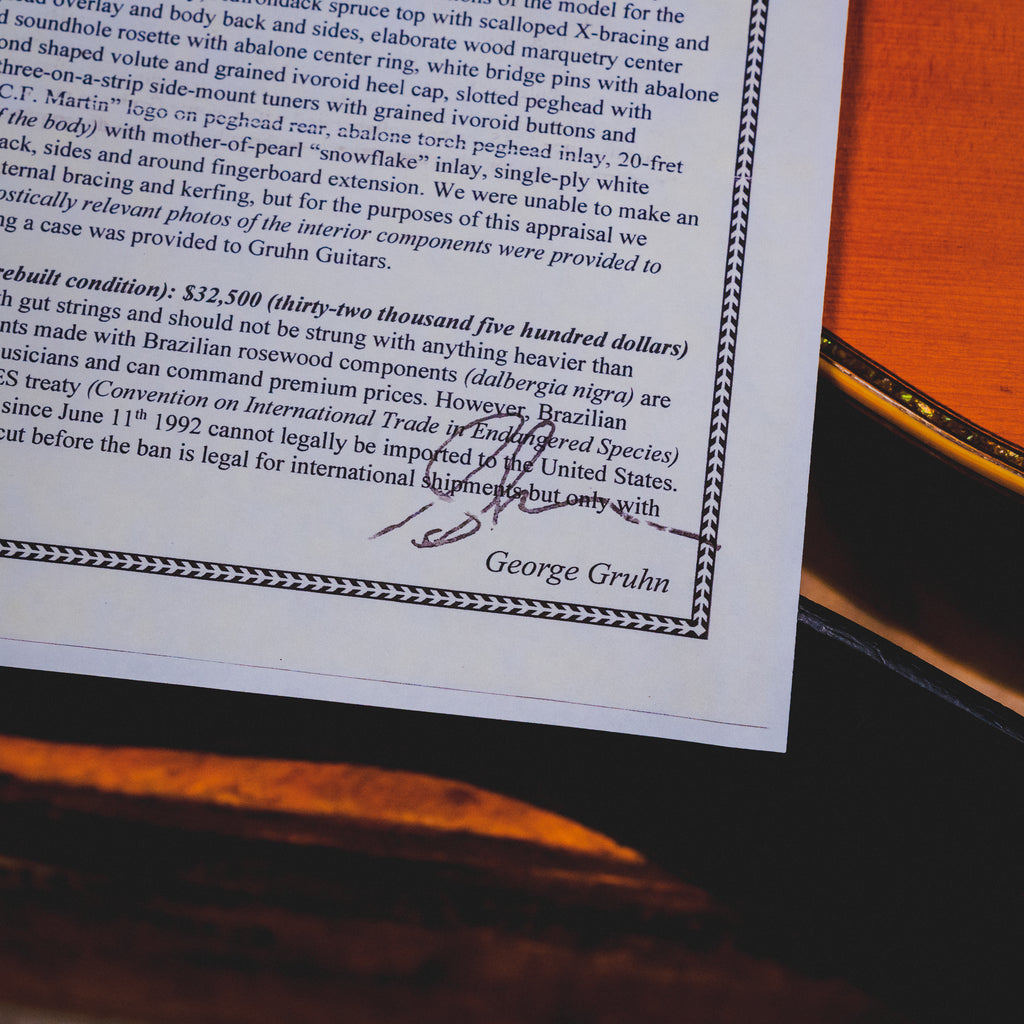 of the model for the
overlay and body back and sides, elaborate wood marquetry center
soundhole rosette with abalone center ring, white bridge pins with abalone
ond shaped volute and grained ivoroid heel cap, slotted peghead with
three-on-a-strip side-mount tuners with grained ivoroid buttons and
C.F. Martin” logo on peghead rear, abalone torch peghead inlay, 20-fret
f the body) with mother-of-pearl “snowflake” inlay, single-ply white
ack, sides and around fingerboard extension. We were unable to make an
ternal bracing and kerfing, but for the purposes of this appraisal we
ostically relevant photos of the interior components were provided to
ng a case was provided to Gruhn Guitars.
rebuilt condition): $32,500 (thirty-two thousand five hundred dollars)
h gut strings and should not be strung with anything heavier than
nts made with Brazilian rosewood components (dalbergia nigra) are
usicians and can command premium prices. However, Brazilian
ES treaty (Convention on International Trade in Endangered Species)
since June 11th 1992 cannot legally be imported to the United States.
cut before the ban is legal for international shipments but only with
George Gruhn